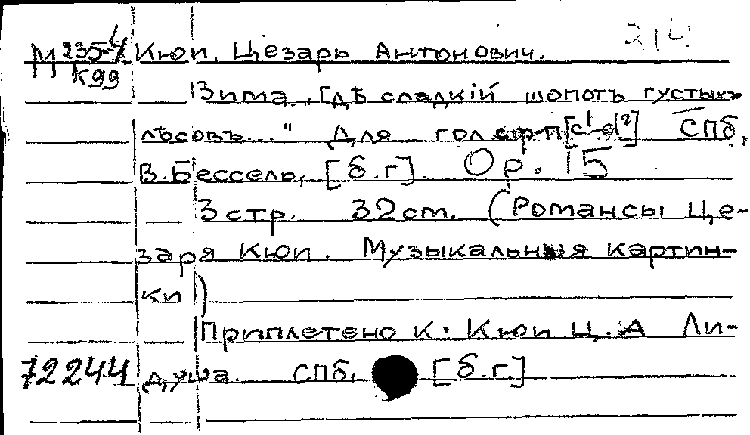 М 235-4 Кюи, Цезарь Антонович. 214
К99
Зима „Гдѣ сладкій шопотъ густыхъ
лѣсовъ..." Для гол с ф-п [c¹-d²] СПб,
В. Бессель, [б.г]. Ор. 15
3 стр. 32 cm. (Романсы Це-
заря Кюи. Музыкальныя картин-
ки)
Приплетено к. Кюи Ц. А Ли-
72244 душа СПб, [б.г.]